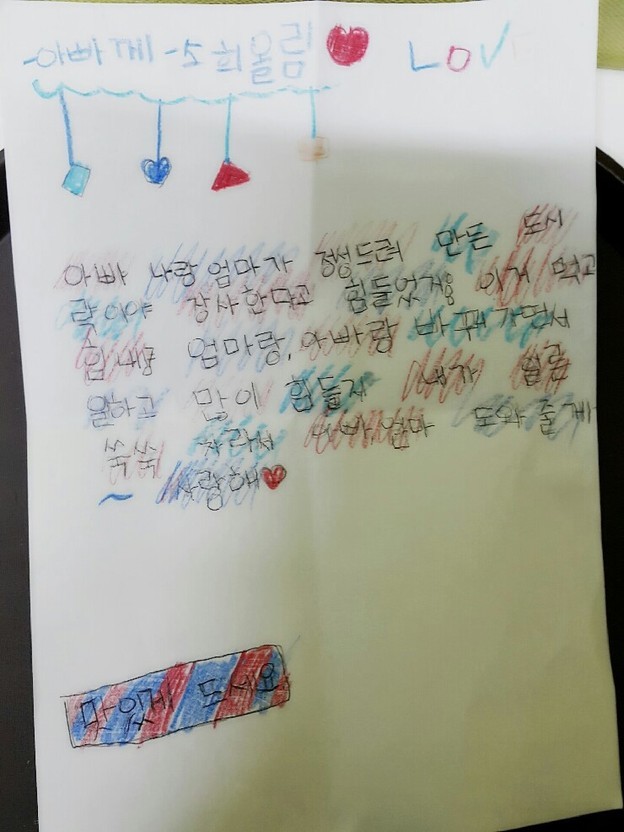 -아빠께 -소희올림 LOV
아빠 나랑 엄마가 정성드려 만든 도시
락이야 장사한다고 힘들었겠 이거 먹고
힘내 엄마랑, 아빠랑 바꿔가면서
일하고 많이 힘들지 내가 얼른
쑥쑥 자라서 아빠 엄마 도와줄게
~ 사랑해
맛있게 드세요